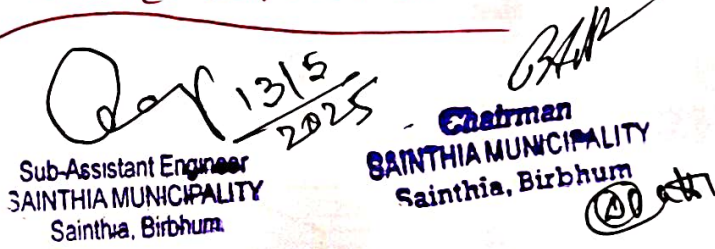 13/5
2025
Sub-Assistant Engineer
SAINTHIA MUNICIPALITY
Sainthia, Birbhum.
Chairman
SAINTHIA MUNICIPALITY
Sainthia, Birbhum